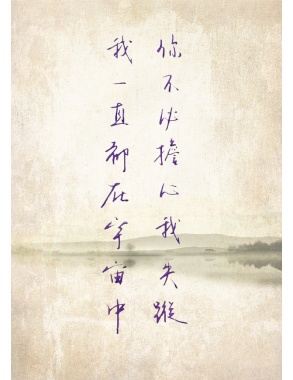 你不必擔心我失蹤
我一直都在宇宙中